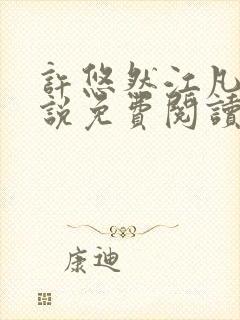 許悠然江凡
說免費閱讀
康迪